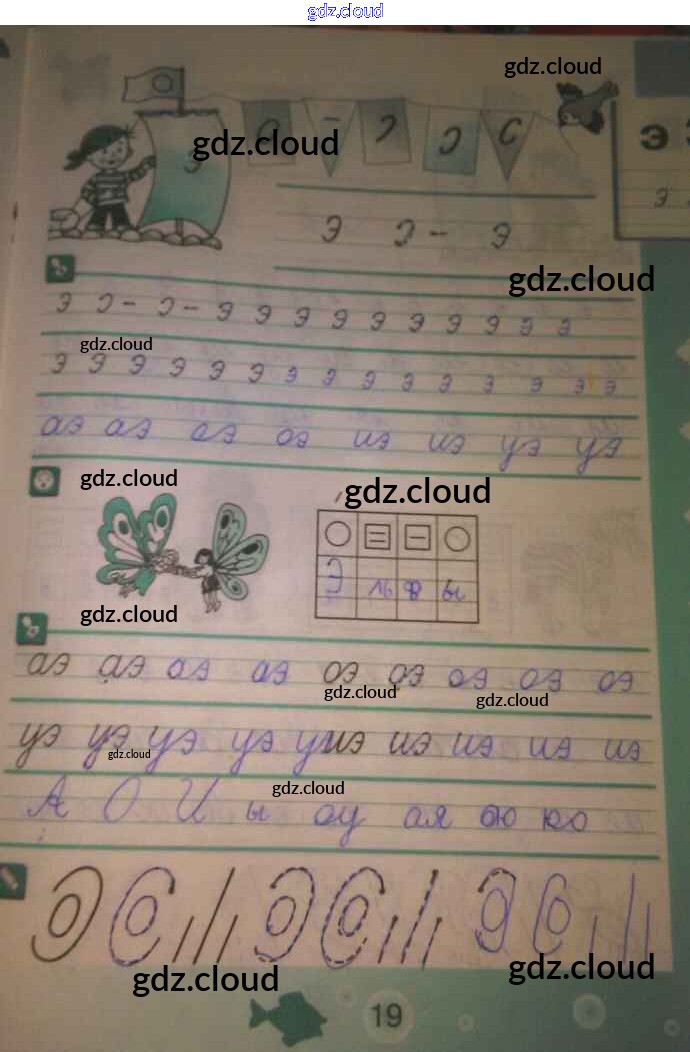 gdz.cloud
gdz.cloud
gdz.cloud
Э
э
э э
gdz.cloud
э э э э э э э э э э э
gdz.cloud
э э э э э э э э э э э э э э э
аэ аэ оэ оэ иэ иэ уэ уэ
gdz.cloud
gdz.cloud
Э ль ф ы
gdz.cloud
аэ аэ аэ аэ оэ оэ оэ оэ оэ
gdz.cloud
gdz.cloud
уэ уэ уэ уэ уэ иэ иэ иэ иэ иэ
gdz.cloud
А О И ы оу ая ою ю
gdz.cloud
gdz.cloud
gdz.cloud
19